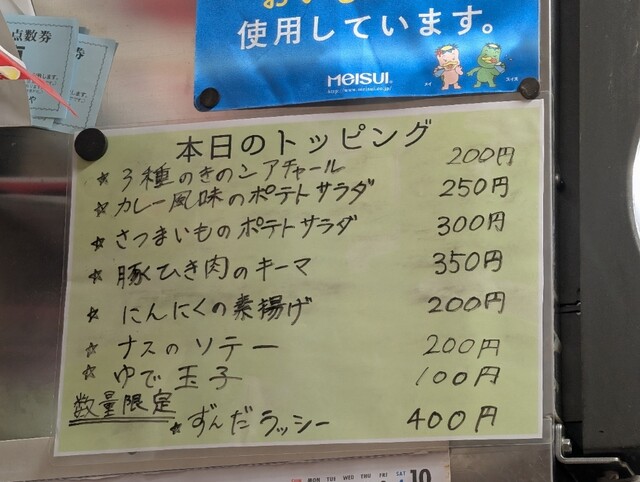 点数券
使用しています。
MEISUI.
メイ
スイ
本日のトッピング
☆ 3種のきのこアチャール 200円
☆ カレー風味のポテトサラダ 250円
☆ さつまいものポテトサラダ 300円
☆ 豚ひき肉のキーマ 350円
☆ にんにくの素揚げ 200円
☆ ナスのソテー 200円
☆ ゆで玉子 100円
数量限定
☆ ずんだラッシー 400円
SUN MON TUE WED THU FRI SAT 10